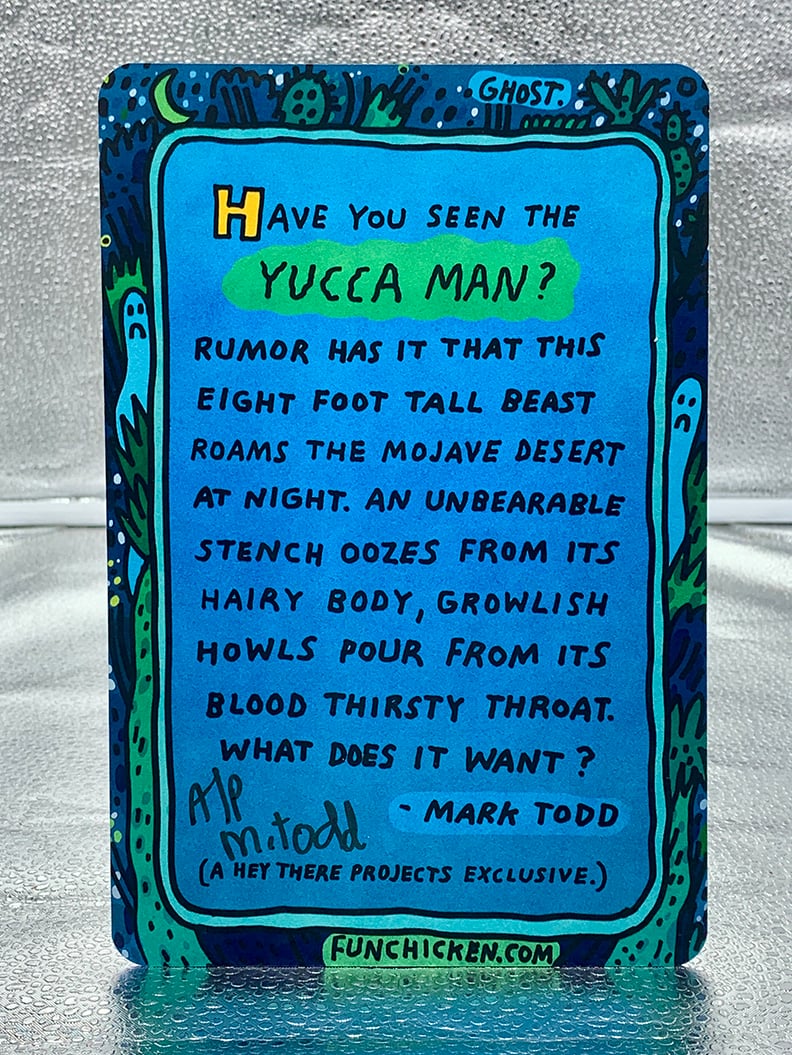 GHOST.
HAVE YOU SEEN THE
YUCCA MAN?
RUMOR HAS IT THAT THIS
EIGHT FOOT TALL BEAST
ROAMS THE MOJAVE DESERT
AT NIGHT. AN UNBEARABLE
STENCH OOZES FROM ITS
HAIRY BODY, GROWLISH
HOWLS POUR FROM ITS
BLOOD THIRSTY THROAT.
WHAT DOES IT WANT?
- MARK TODD
A/P
M.Todd
(A HEY THERE PROJECTS EXCLUSIVE.)
FUNCHICKEN.COM